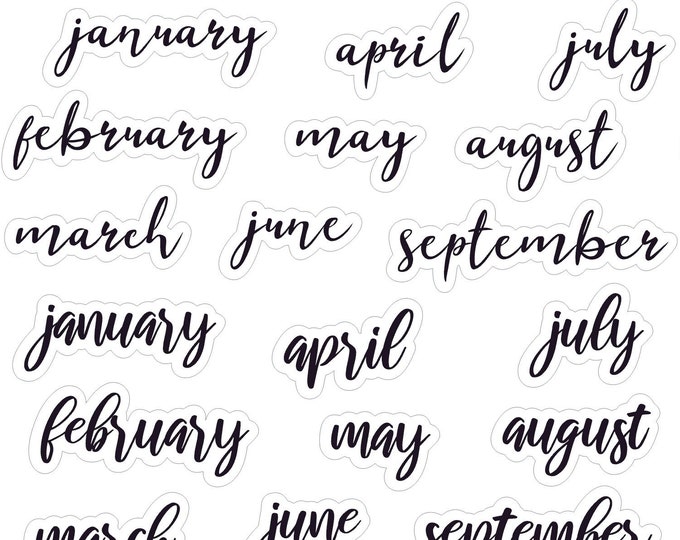 january april july
february may august
march june september
january april july
february may august
march june september